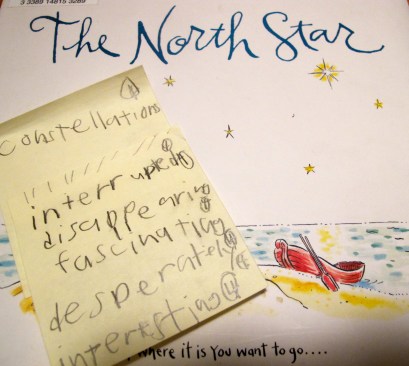 3 3389 14815 3289
The North Star
constellations
interrupted
disappearing
fascinating
desperately
interesting
where it is you want to go....